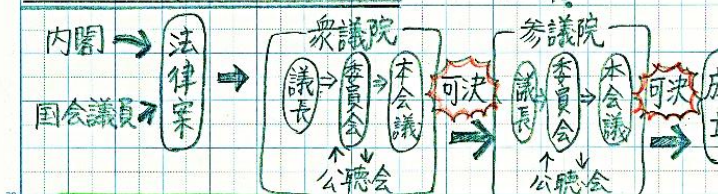 内閣→
国会議員→
法律案
→
衆議院
議長⇒委員会⇒本会議
↑↓
公聴会
可決
→
参議院
議長⇒委員会⇒本会議
↑↓
公聴会
可決
→
成